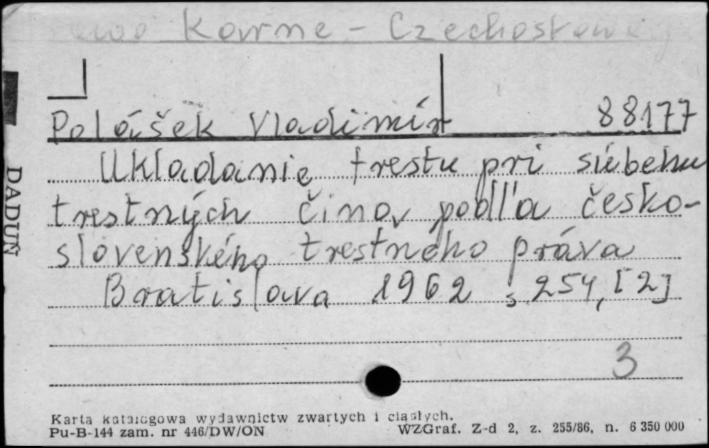 Karne - Czechosłowacja
Polášek Vladimír 88177
Ukladanie trestu pri súbehu
trestných činov podľa česko-
slovenského trestného práva
Bratislava 1962 s. 254, [2]
3
DADUN
Karta katalogowa wydawnictw zwartych i ciągłych.
Pu-B-144 zam. nr 446/DW/ON WZGraf. Z-d 2, z. 255/86, n. 6 350 000